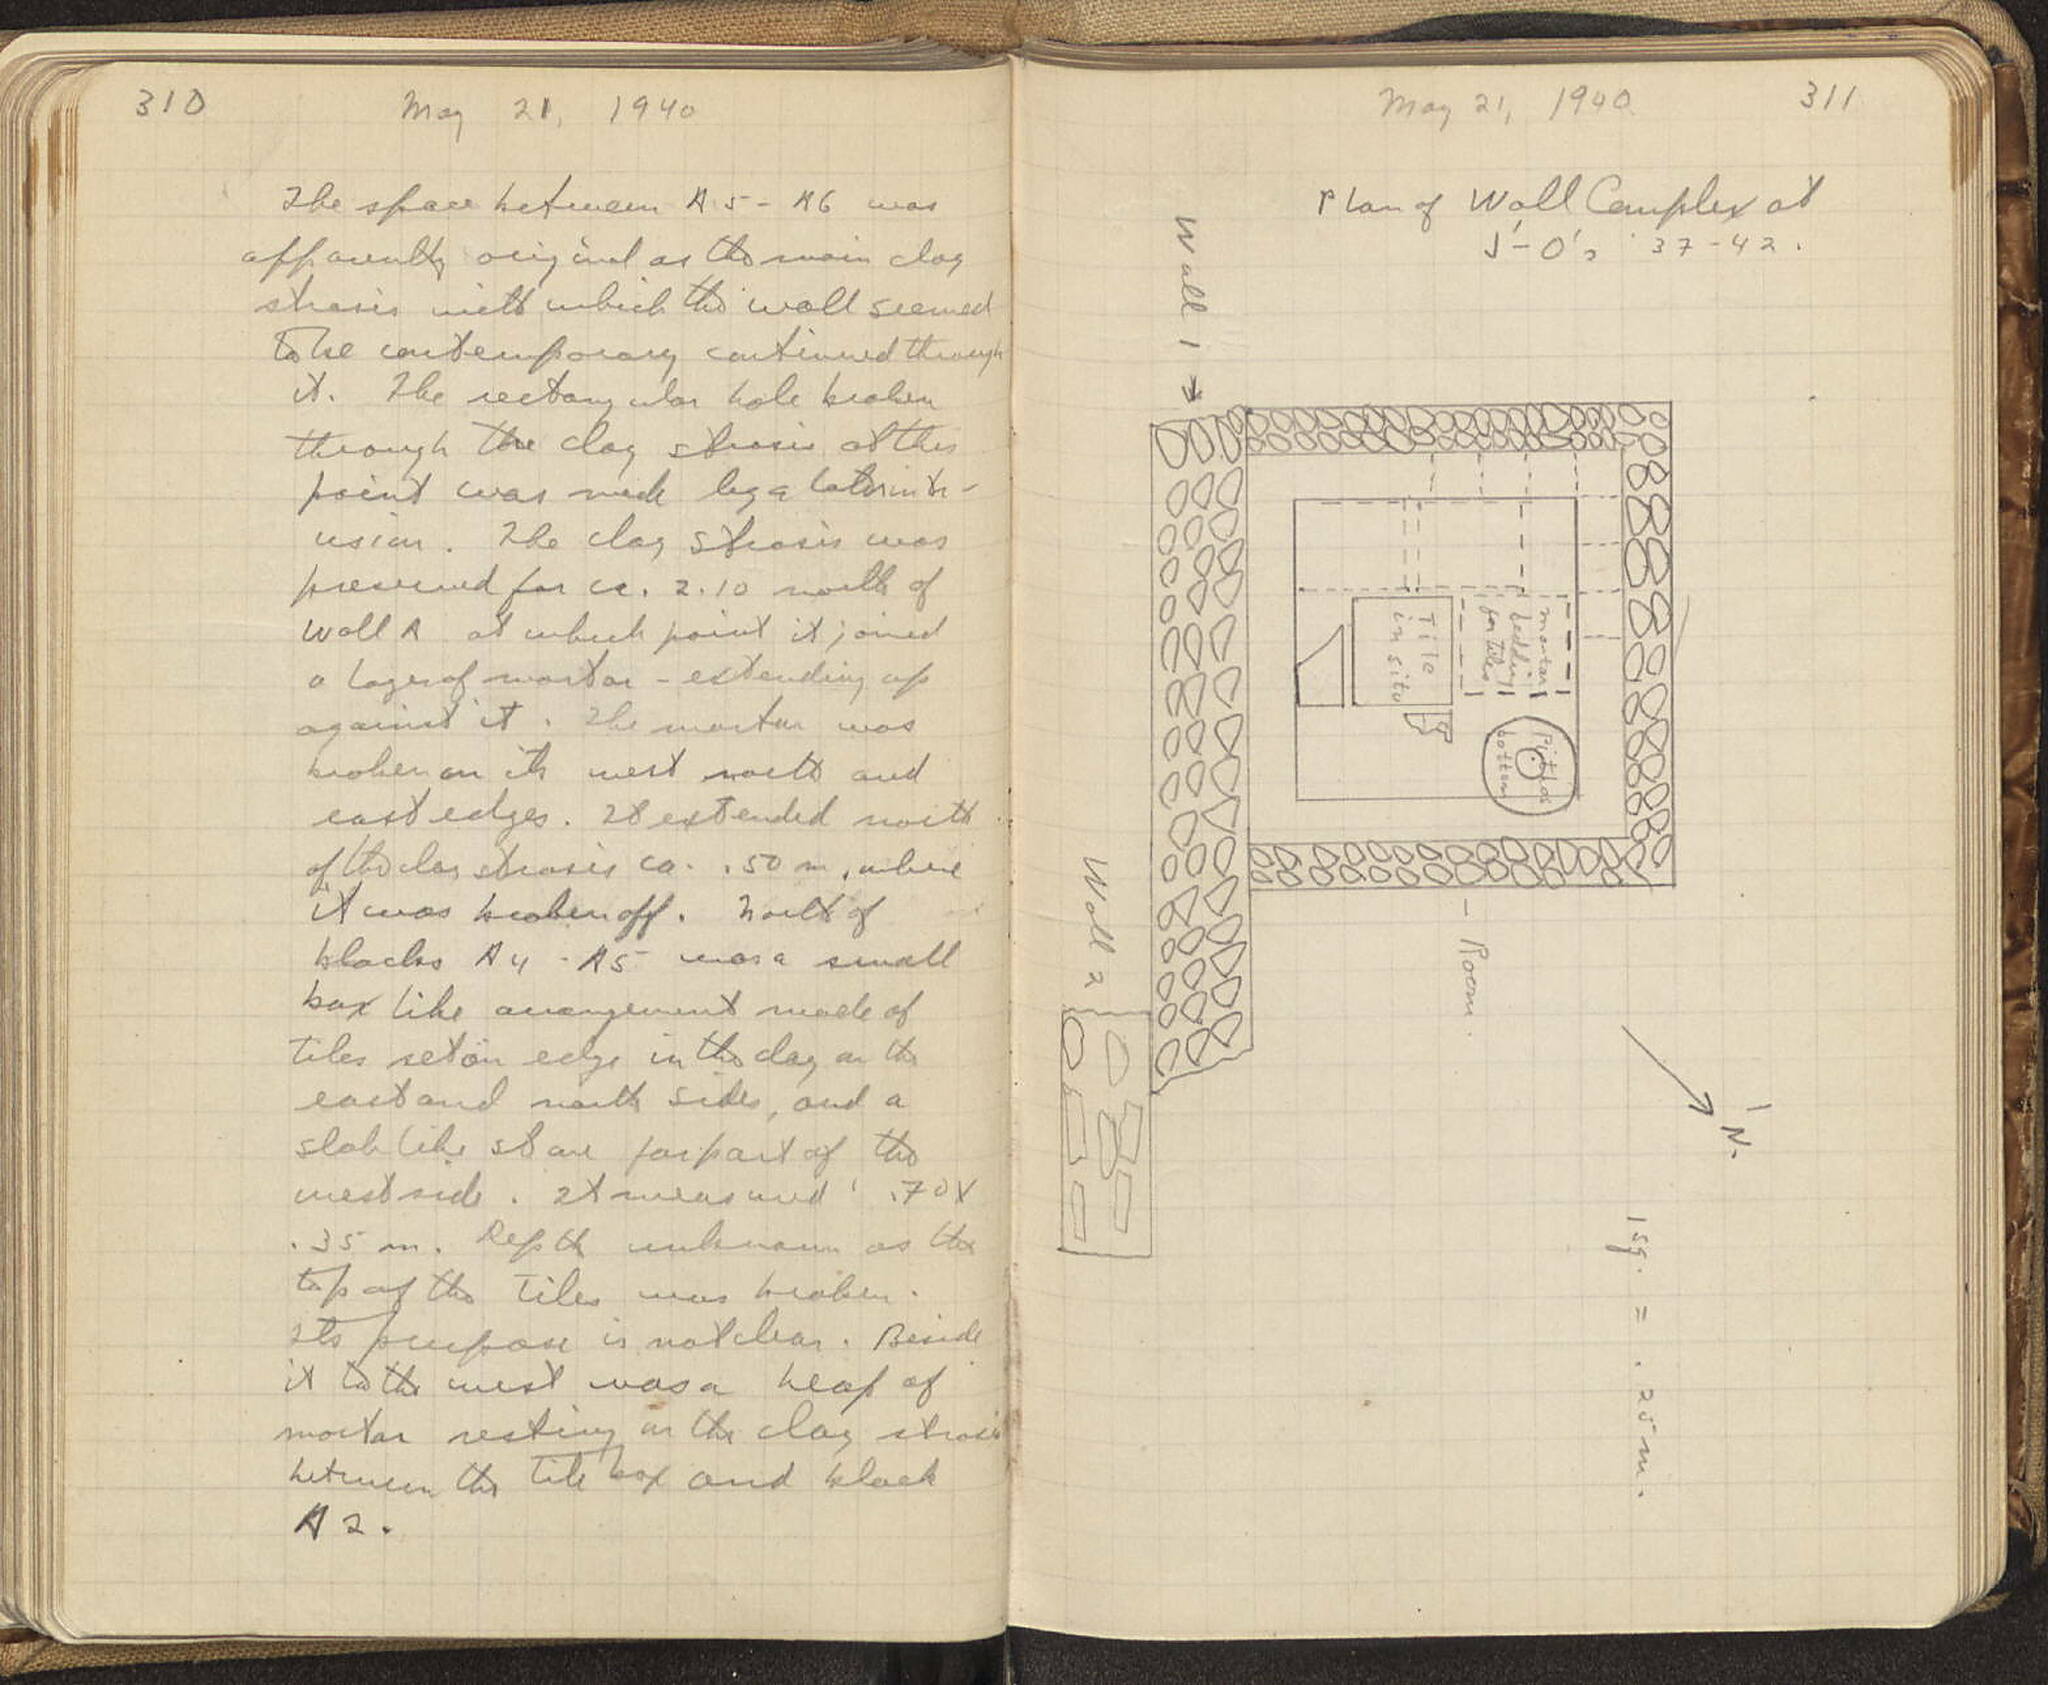 310
May 21, 1940
The space between A5 - A6 was
apparently original as the main clay
strosis with which the wall seemed
to be contemporary continued through
it. The rectangular hole broken
through the clay strosis at this
point was made by a later intr-
usion. The clay strosis was
preserved for ca. 2.10 north of
wall A at which point it joined
a layer of mortar - extending up
against it. The mortar was
broken on its west north and
east edges. It extended north
of the clay strosis ca. .50 m, where
it was broken off. North of
blocks A4 - A5 was a small
box like arrangement made of
tiles set on edge in the clay on the
east and north sides, and a
slab like stone for part of the
west side. It measured .70 x
.35 m. Depth unknown as the
top of the tiles was broken.
Its purpose is not clear. Beside
it to the west was a heap of
mortar resting on the clay strosis
between the tile box and block
A2.
May 21, 1940
311
Plan of Wall Complex at
J'-O's 37-42.
Wall 1 →
Tile
in situ
mortar
bedding
for tiles
Pithos
bottom
Wall 2
- Room.
N.
1 sq. = .25 m.